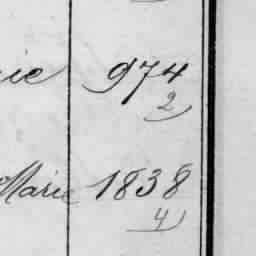 974
2)
Marie 1838
4)